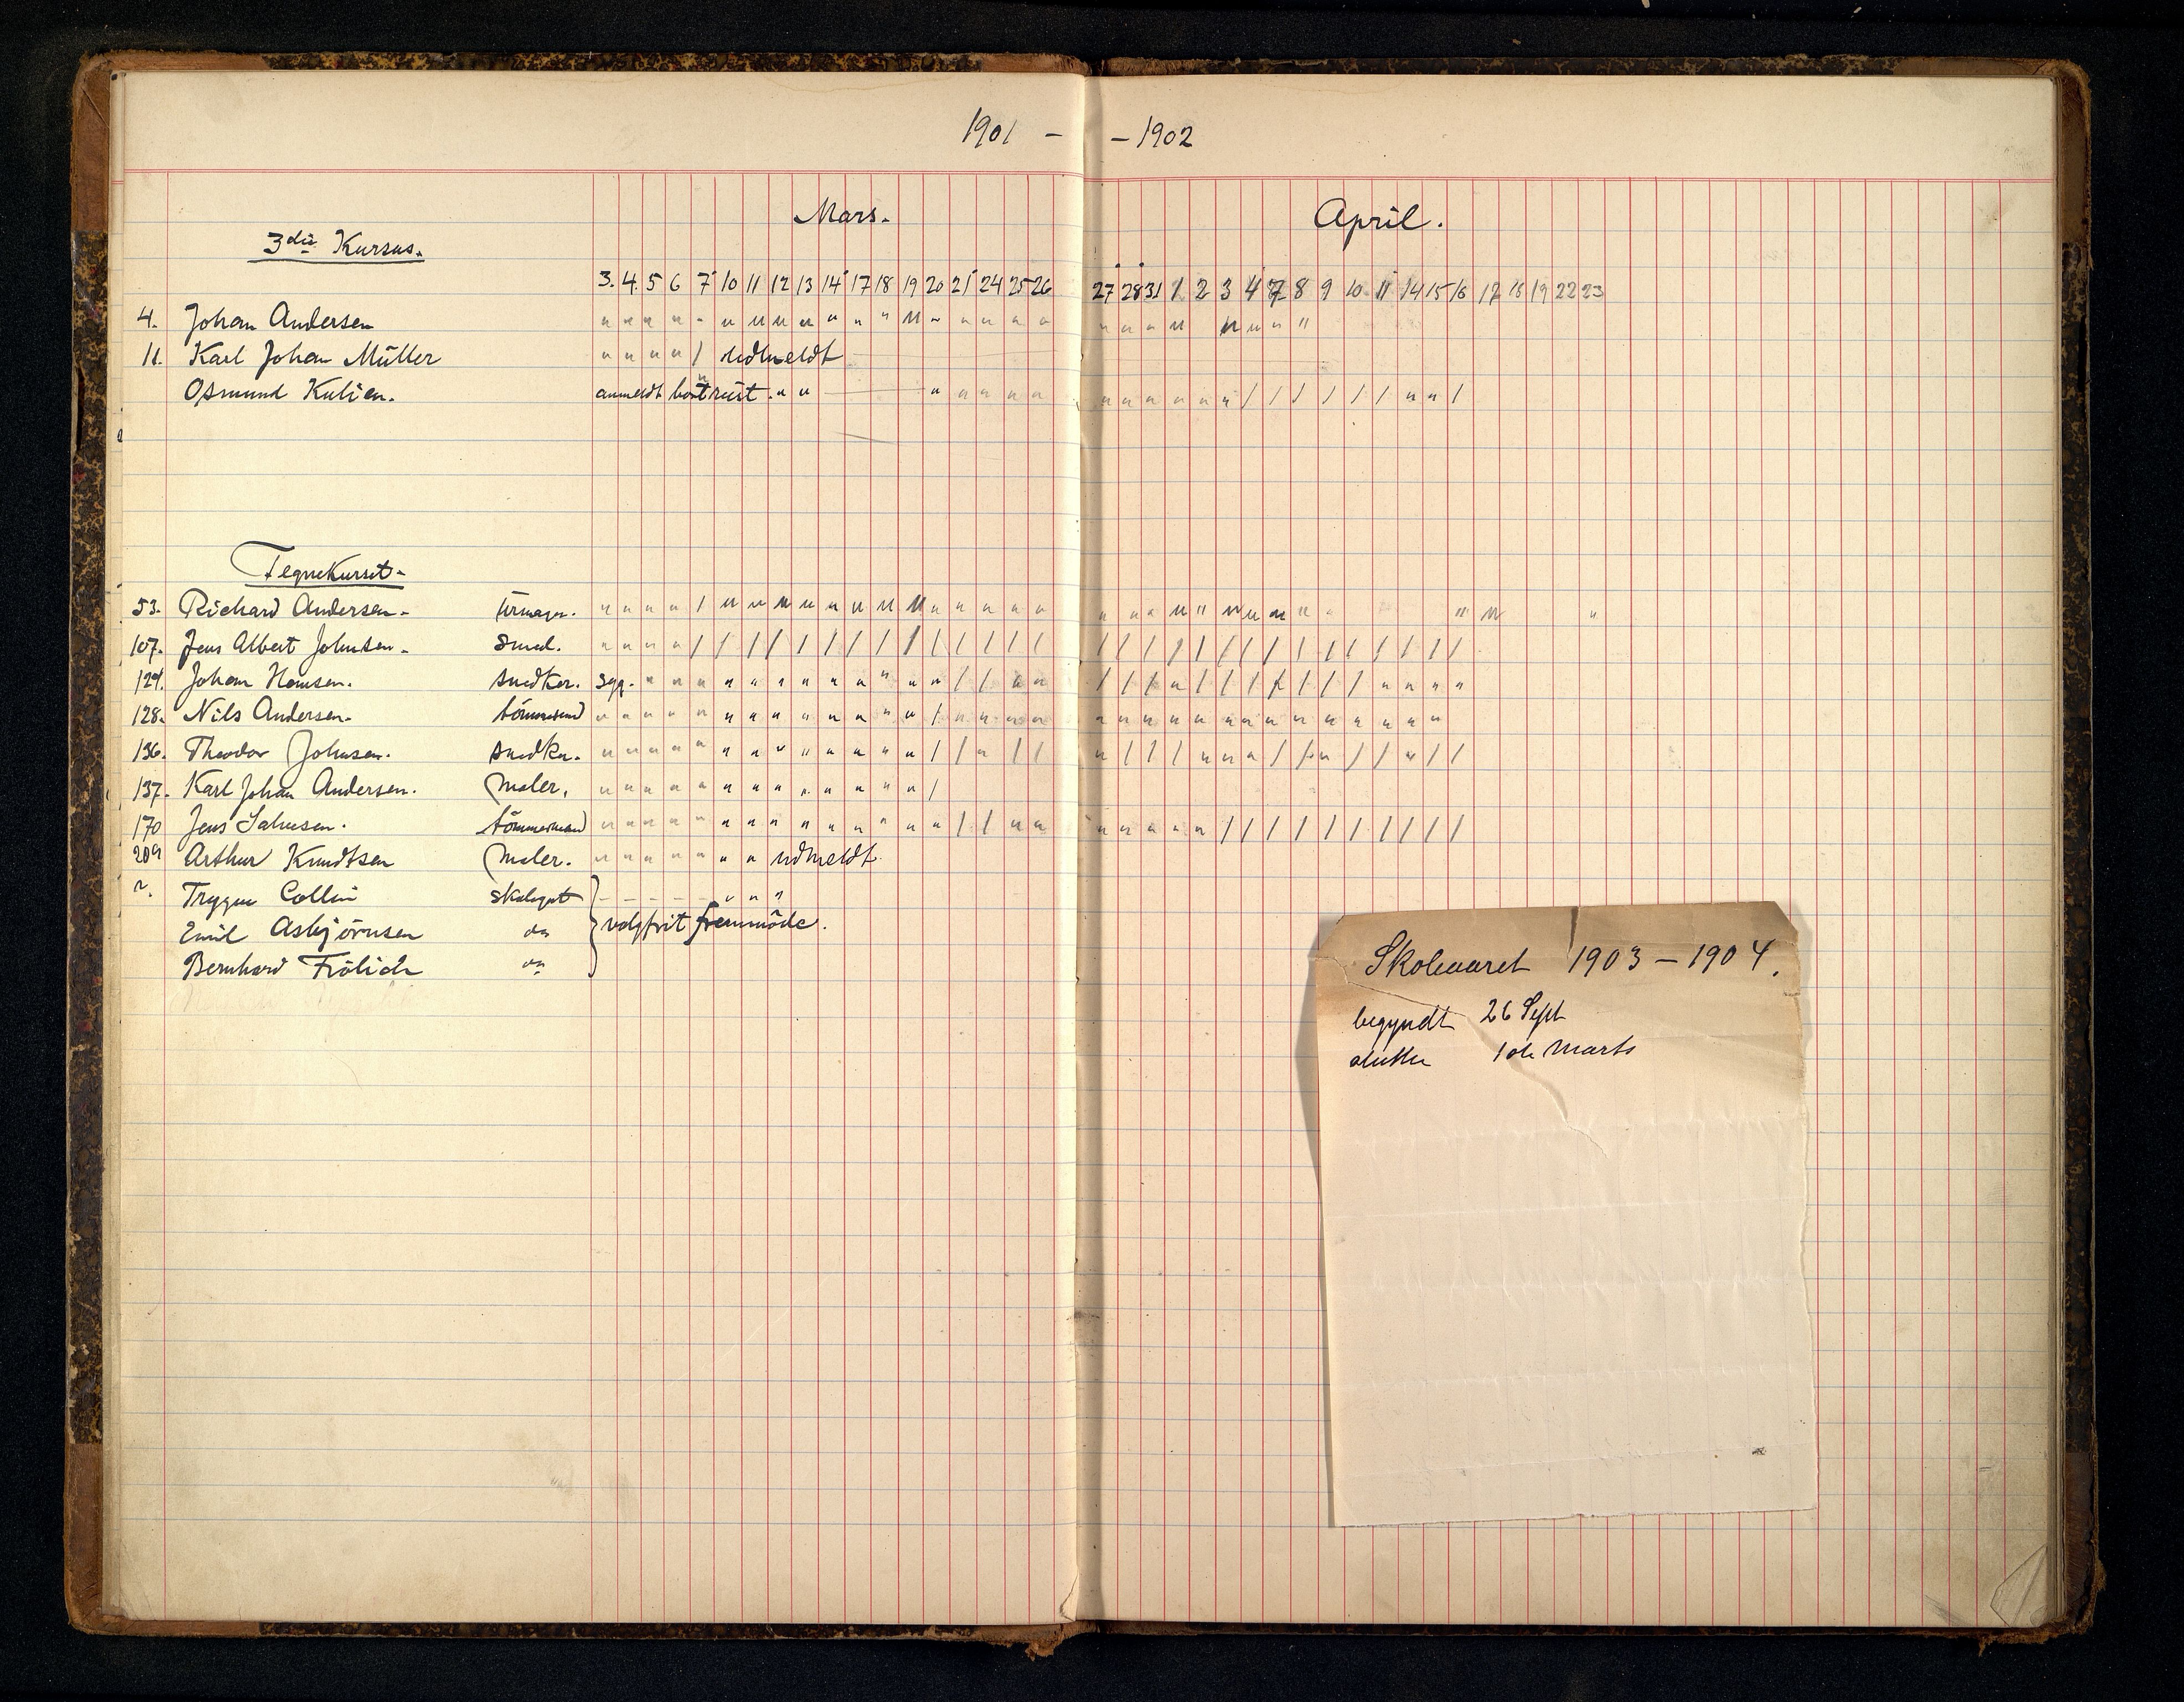 1901 — — 1902
Mars. April.
3die Kursus.
3. 4. 5 6 7 10 11 12 13 14 17 18 19 20 21 24 25 26 27 28 31 1 2 3 4 7 8 9 10 11 14 15 16 17 18 19 22 23
4. Johan Andersen
11. Karl Johan Müller udmeldt
Osmund anmeldt
Tegnekurset.
53. Richard Andersen.
107. Jens Albert Johnsen. Smed.
Johan Hansen. snedker. syg.
128. Nils Andersen. tömmermand
136. Theodor Johnsen. snedker.
137. Karl Johan Andersen. Maler.
170 Jens tömmermand
209 Arthur Knudtsen Maler. udmeldt.
Trygve Collin skolegut
Emil Asbjörnsen do valgfrit fremmöde.
Bernhard Frölich do
Skoleaaret 1903 — 1904.
begyndt 26 Sept
slutter 1ste Marts